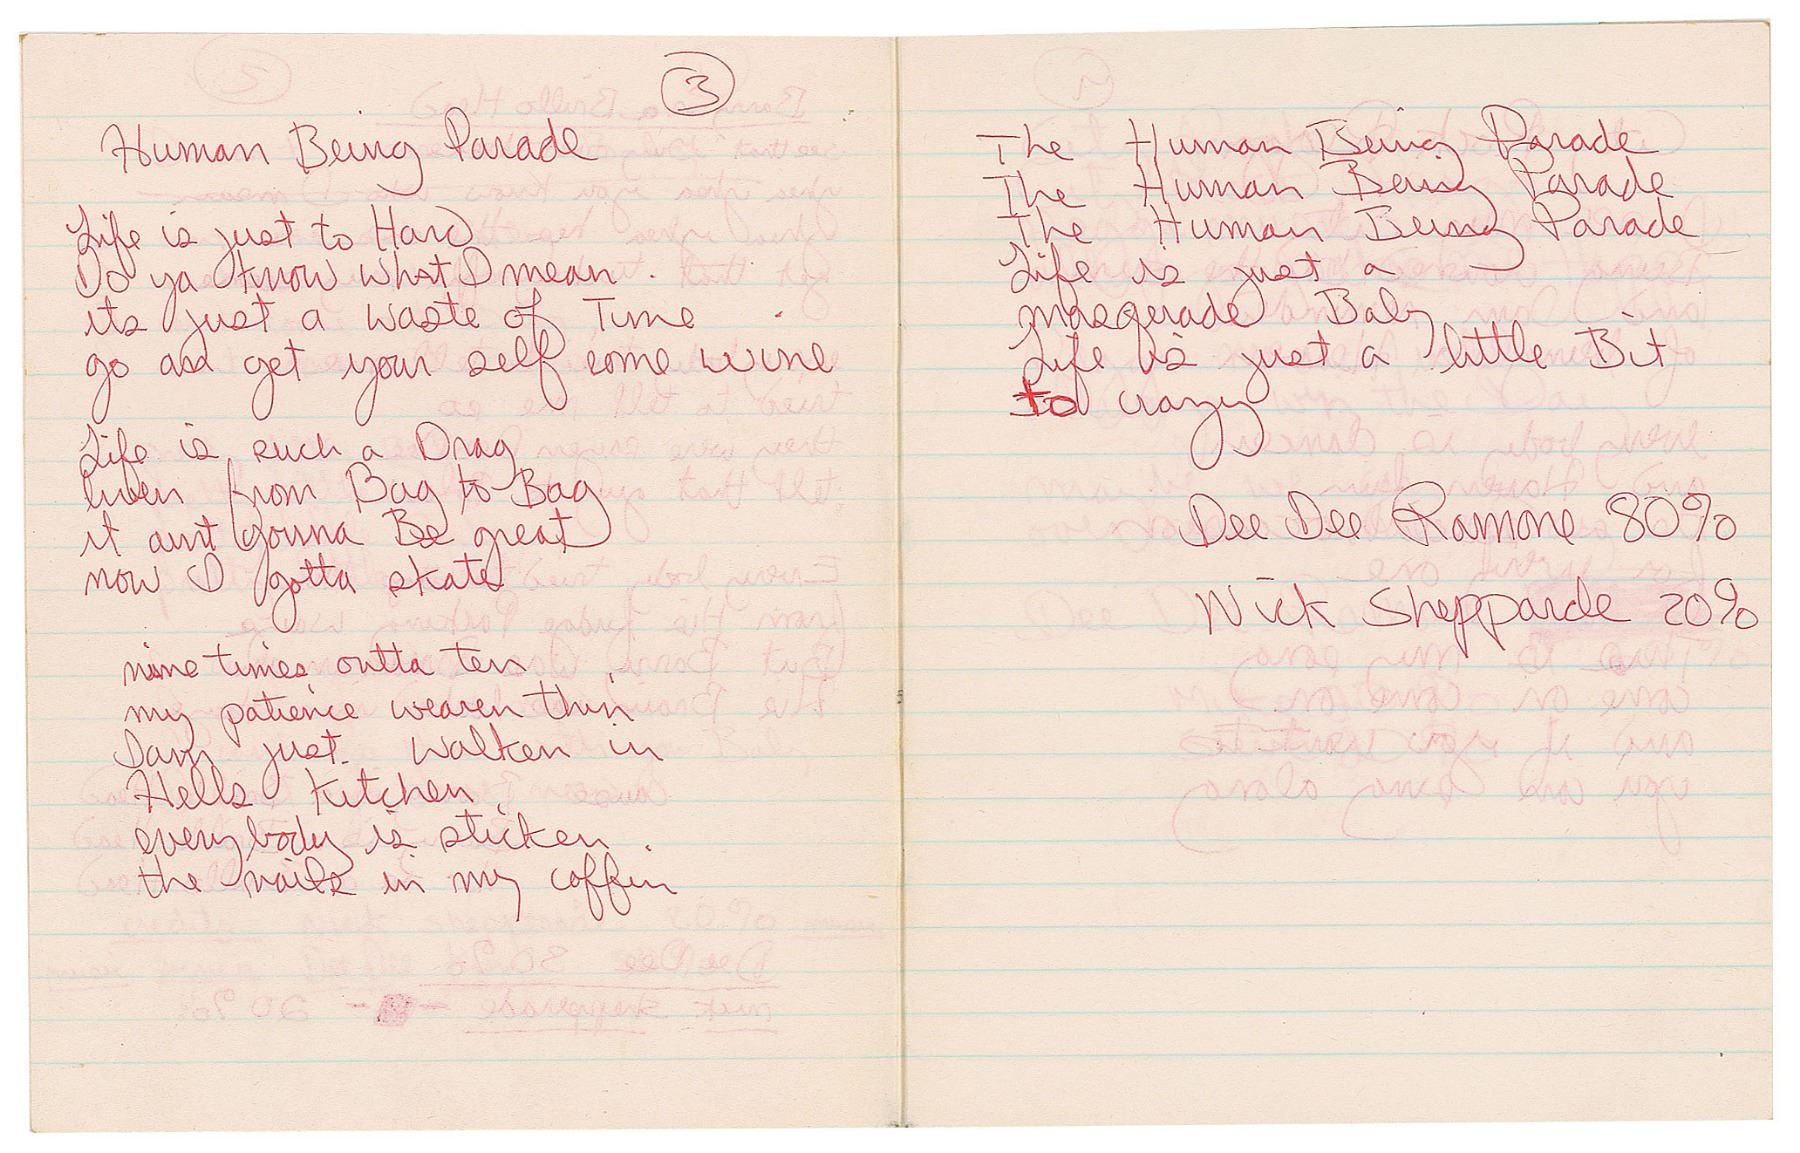 3
Human Being Parade
Life is just to Hard
Do ya know what I mean.
its just a waste of Time
go and get your self some wine
Life is such a Drag
liven from Bag to Bag
it aint gonna Be great
now I gotta skate
nine times outta ten
my patience wearen thin
I am just walken in
Hells Kitchen.
everybody is sticken.
the nails in my coffin
The Human Being Parade
The Human Being Parade
The Human Being Parade
Life is just a
masqerade Baby
Life is just a little Bit
to crazy
Dee Dee Ramone 80%
Nick Shepparde 20%